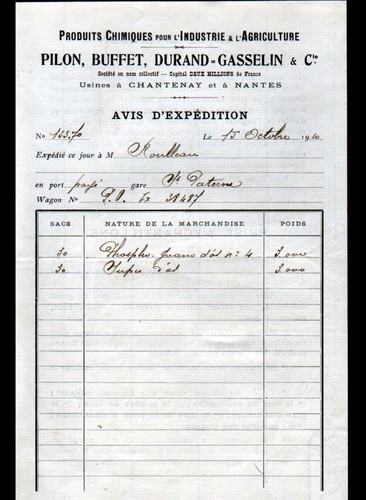 PRODUITS CHIMIQUES POUR L'INDUSTRIE & L'AGRICULTURE
PILON, BUFFET, DURAND=GASSELIN & Cie
Société en nom collectif — Capital DEUX MILLIONS de Francs
Usines à CHANTENAY et à NANTES
AVIS D'EXPÉDITION
No 16370 Le 15 Octobre 1910
Expédié ce jour à M Roulleau
en port payé gare St Paterne
Wagon No P.O. 38487
SACS NATURE DE LA MARCHANDISE POIDS
30 Phospho guano d'os no 4 3.000
30 d'os 3.000